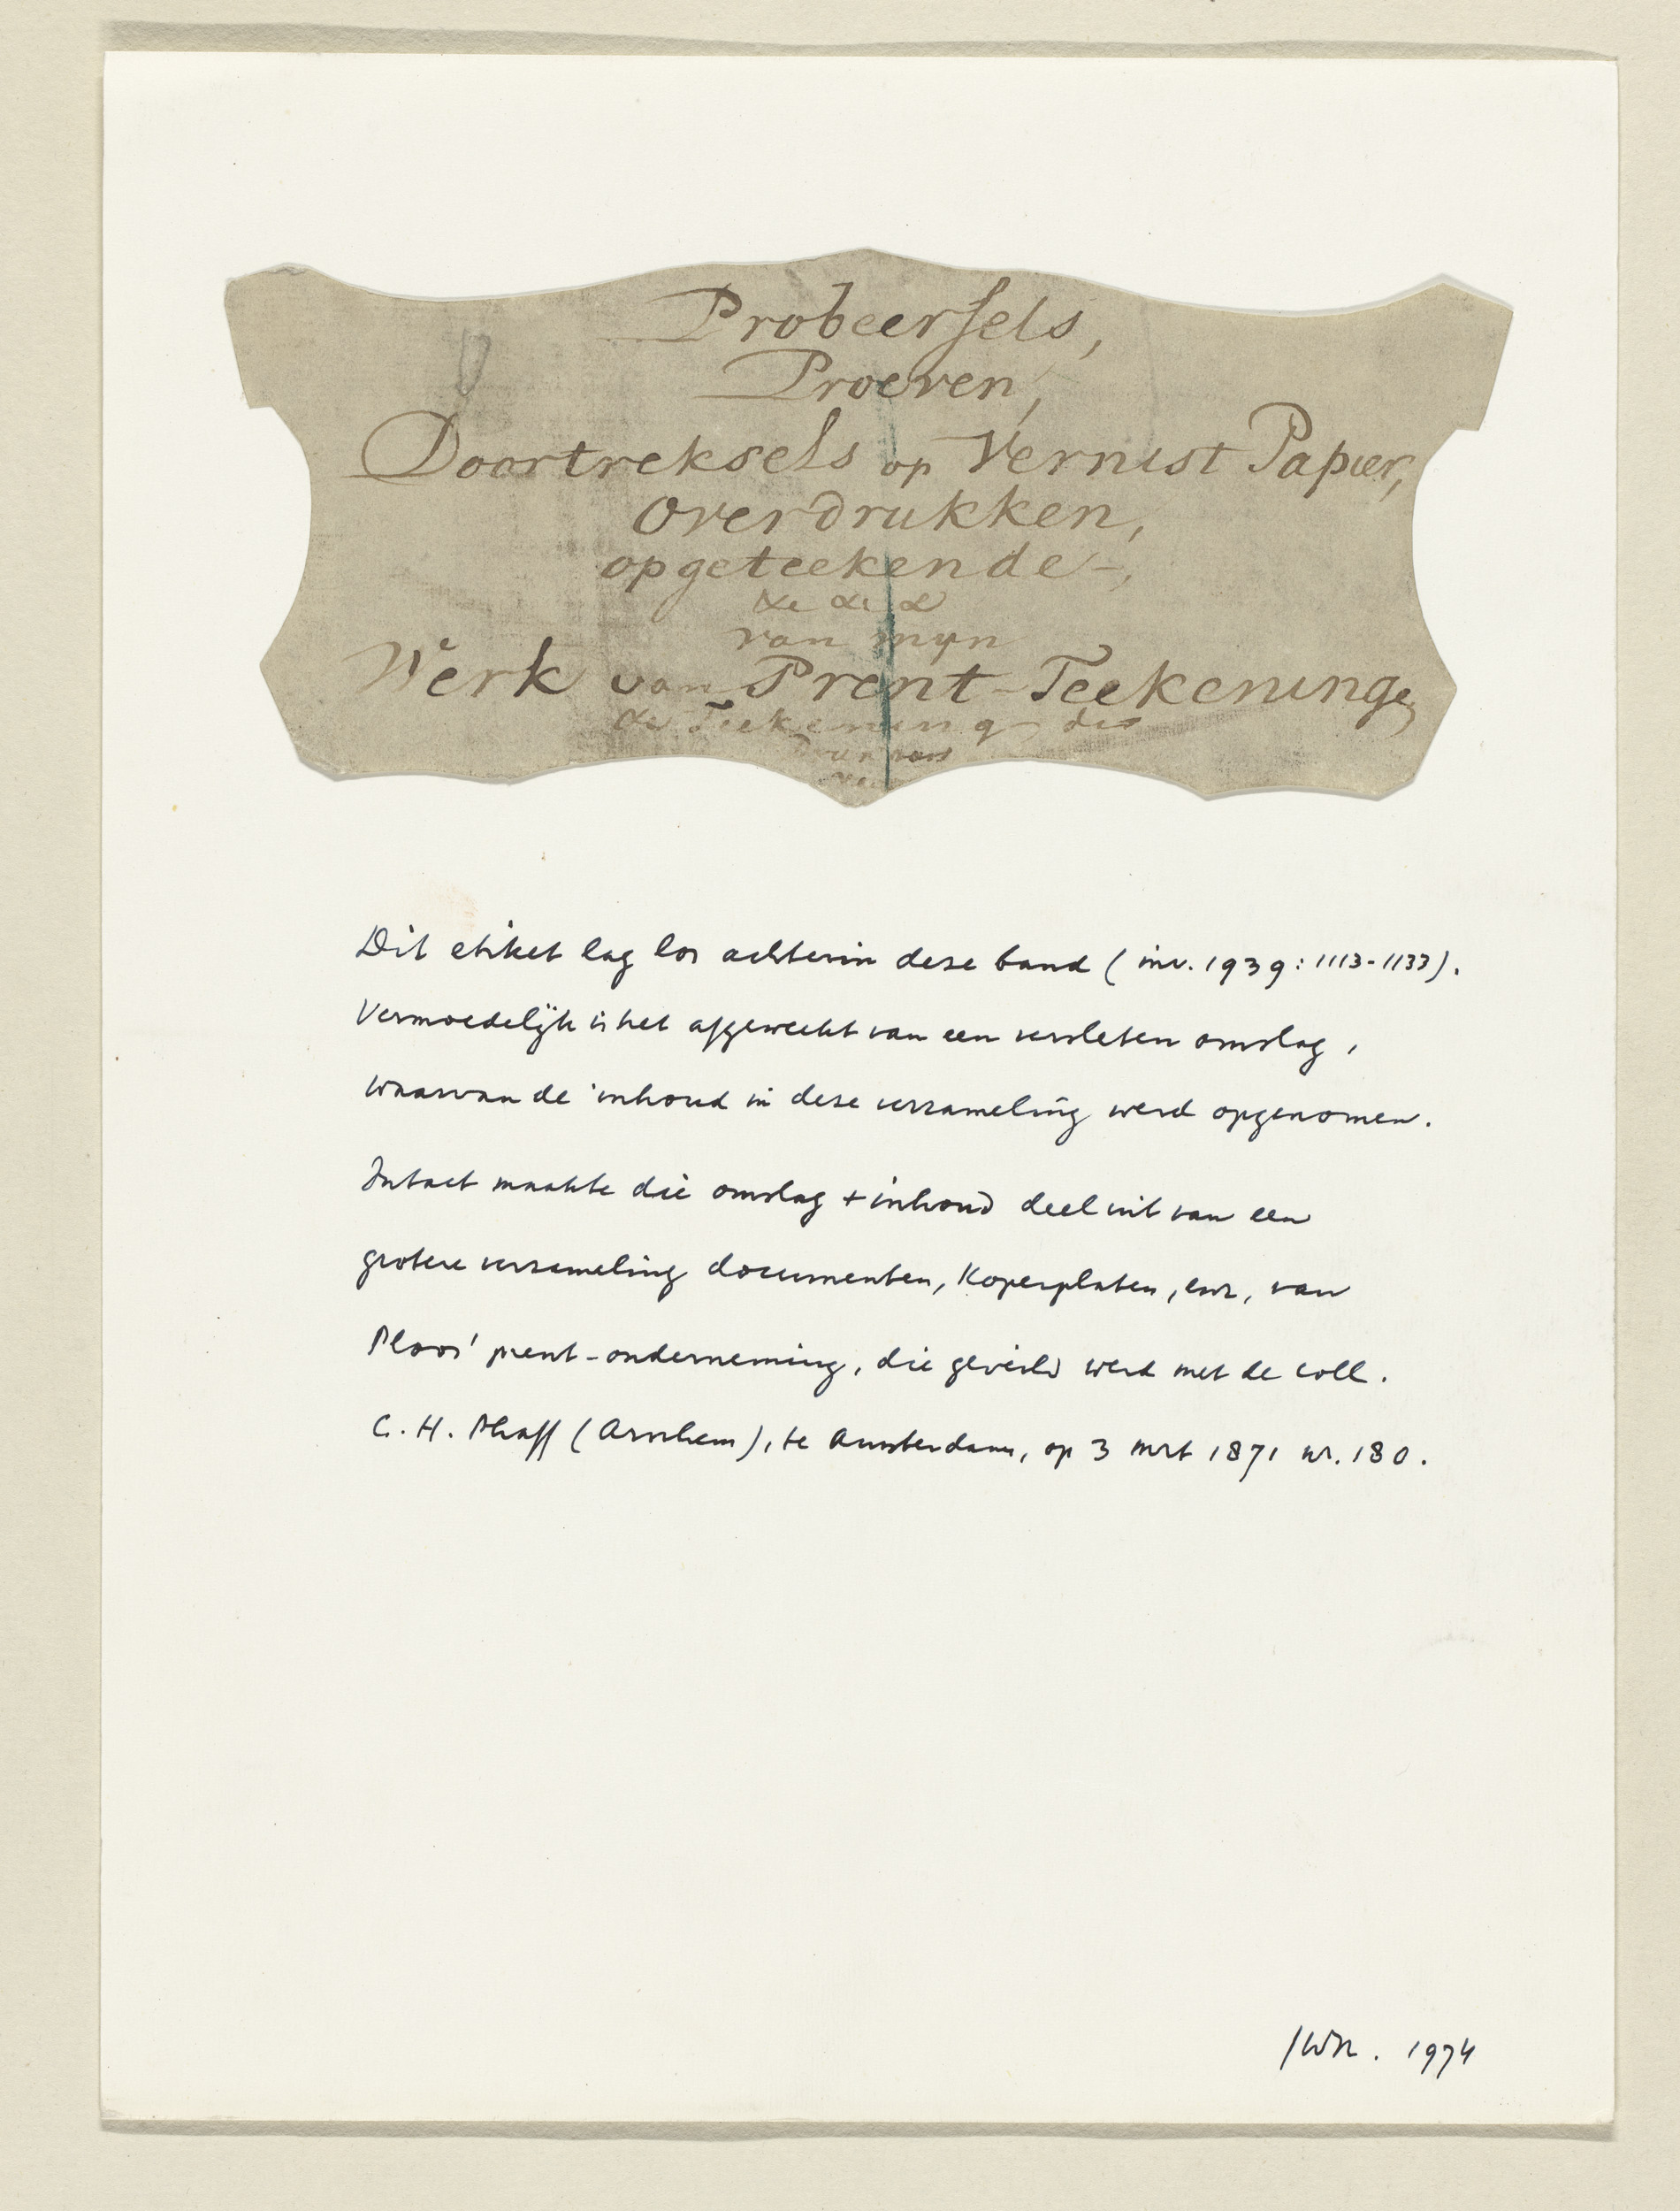 Probeersels,
Proeven,
Doortreksels op Vernist Papier,
Overdrukken,
opgeteekende-,
&c &c &
van myn
Werk van Prent-Teekeninge,
de Teekening
Dit etiket lag los achterin deze band (inv. 1939: 1113-1133).
Vermoedelijk is het afgeweekt van een versleten omslag,
waarvan de inhoud in deze verzameling werd opgenomen.
Intact maakte die omslag + inhoud deel uit van een
grotere verzameling documenten, koperplaten, enz, van
Ploos' prent-onderneming, die geveild werd met de coll.
C. H. Phaff (Arnhem), te Amsterdam, op 3 mrt 1871 nr. 180.
JWN. 1974